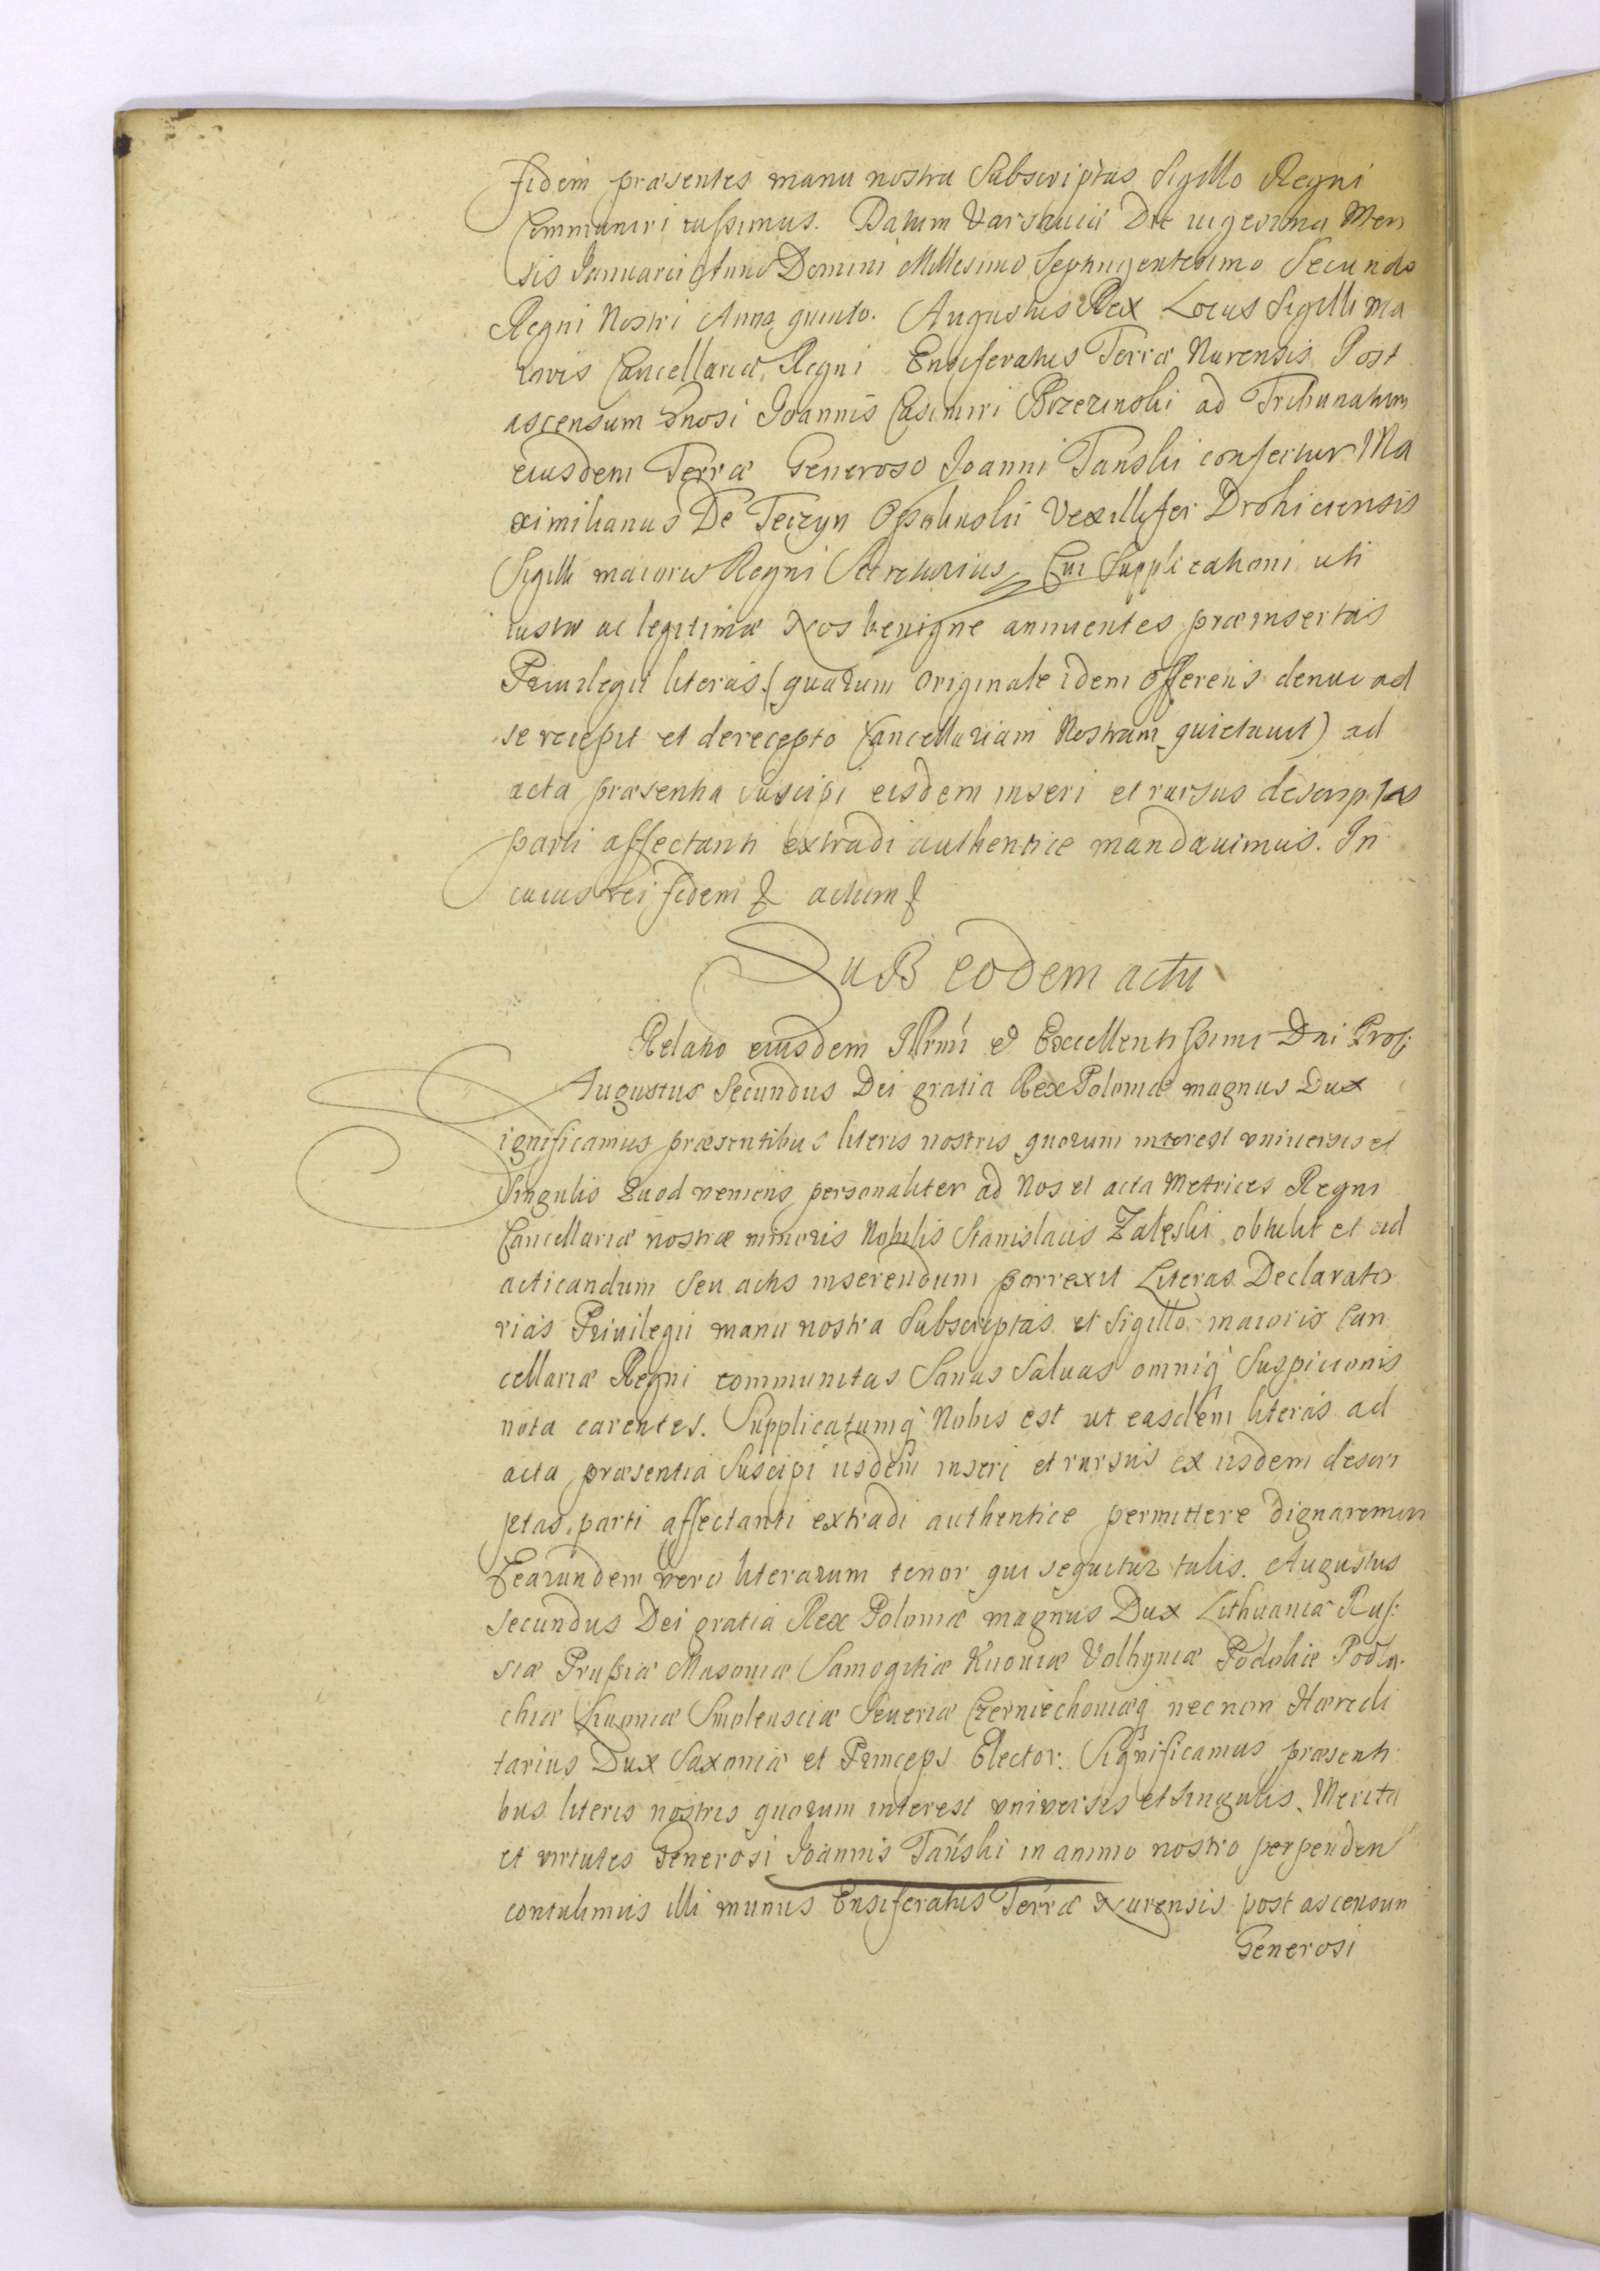 fidem præsentes manu nostra Subscriptas Sigillo Regni
Communiri iussimus. Datum Varsaviæ Die vigesima Men
sis Ianuarii Anno Domini Millesimo Septingentesimo Secundo
Regni Nostri Anno quinto. Augustus Rex Locus Sigilli Ma
ioris Cancellariæ Regni Ensiferatus Terræ Nurensis Post
ascensum Gnosi Joannis Casimiri Brzezinski ad Tribunatum
eiusdem Terræ Generoso Joanni Tański confertur Ma
ximilianus De Teczyn Ossolinski Vexillifer Drohiciensis
Sigilli maioris Regni Secretarius Cui Supplicationi uti
iustæ ac legitimæ Nos benigne annuentes præinsertas
Privilegii literas (quarum originale idem offerens denuo ad
se recepit et de recepto Cancellariam Nostram quietavit) ad
acta præsentia suscipi eisdem inseri et rursus descriptas
parti affectanti extradi authentice mandavimus. In
cuius rei fidem & actum &
SuB eodem actu
Relatio eiusdem Illrmi et Excellentissimi Dni Pro
Augustus Secundus Dei gratia Rex Poloniæ magnus Dux
Significamus præsentibus literis nostris quorum interest universis et
Singulis Quod veniens personaliter ad Nos et acta Metrices Regni
Cancellariæ nostræ minoris Nobilis Stanislaus Zalęski obtulit et ad
acticandum seu actis inserendum porrexit Literas Declarato
rias Privilegii manu nostra Subscriptas et Sigillo maioris Can
cellariæ Regni communitas Sanas Salvas omniq Suspicionis
nota carentes. Supplicatumq Nobis est ut easdem literas ad
acta præsentia Suscipi iisdem inseri et rursus ex iisdem descri
ptas parti affectanti extradi authentice permittere dignaremur
Earundem vero literarum tenor qui sequitur talis. Augustus
Secundus Dei gratia Rex Poloniæ magnus Dux Lithuaniæ Rus
siæ Prussiæ Masoviæ Samogitiæ Kiioviæ Volhyniæ Podoliæ Podla
chiæ Livoniæ Smolensciæ Severiæ Czerniechoviæq necnon Hæredi
tarius Dux Saxoniæ et Princeps Elector. Significamus præsenti
bus literis nostris quorum interest universis et singulis. Merita
et virtutes Generosi Joannis Tański in animo nostro perpenden
contulimus illi munus Ensiferatus Terræ Nurensis post ascensum
Generosi